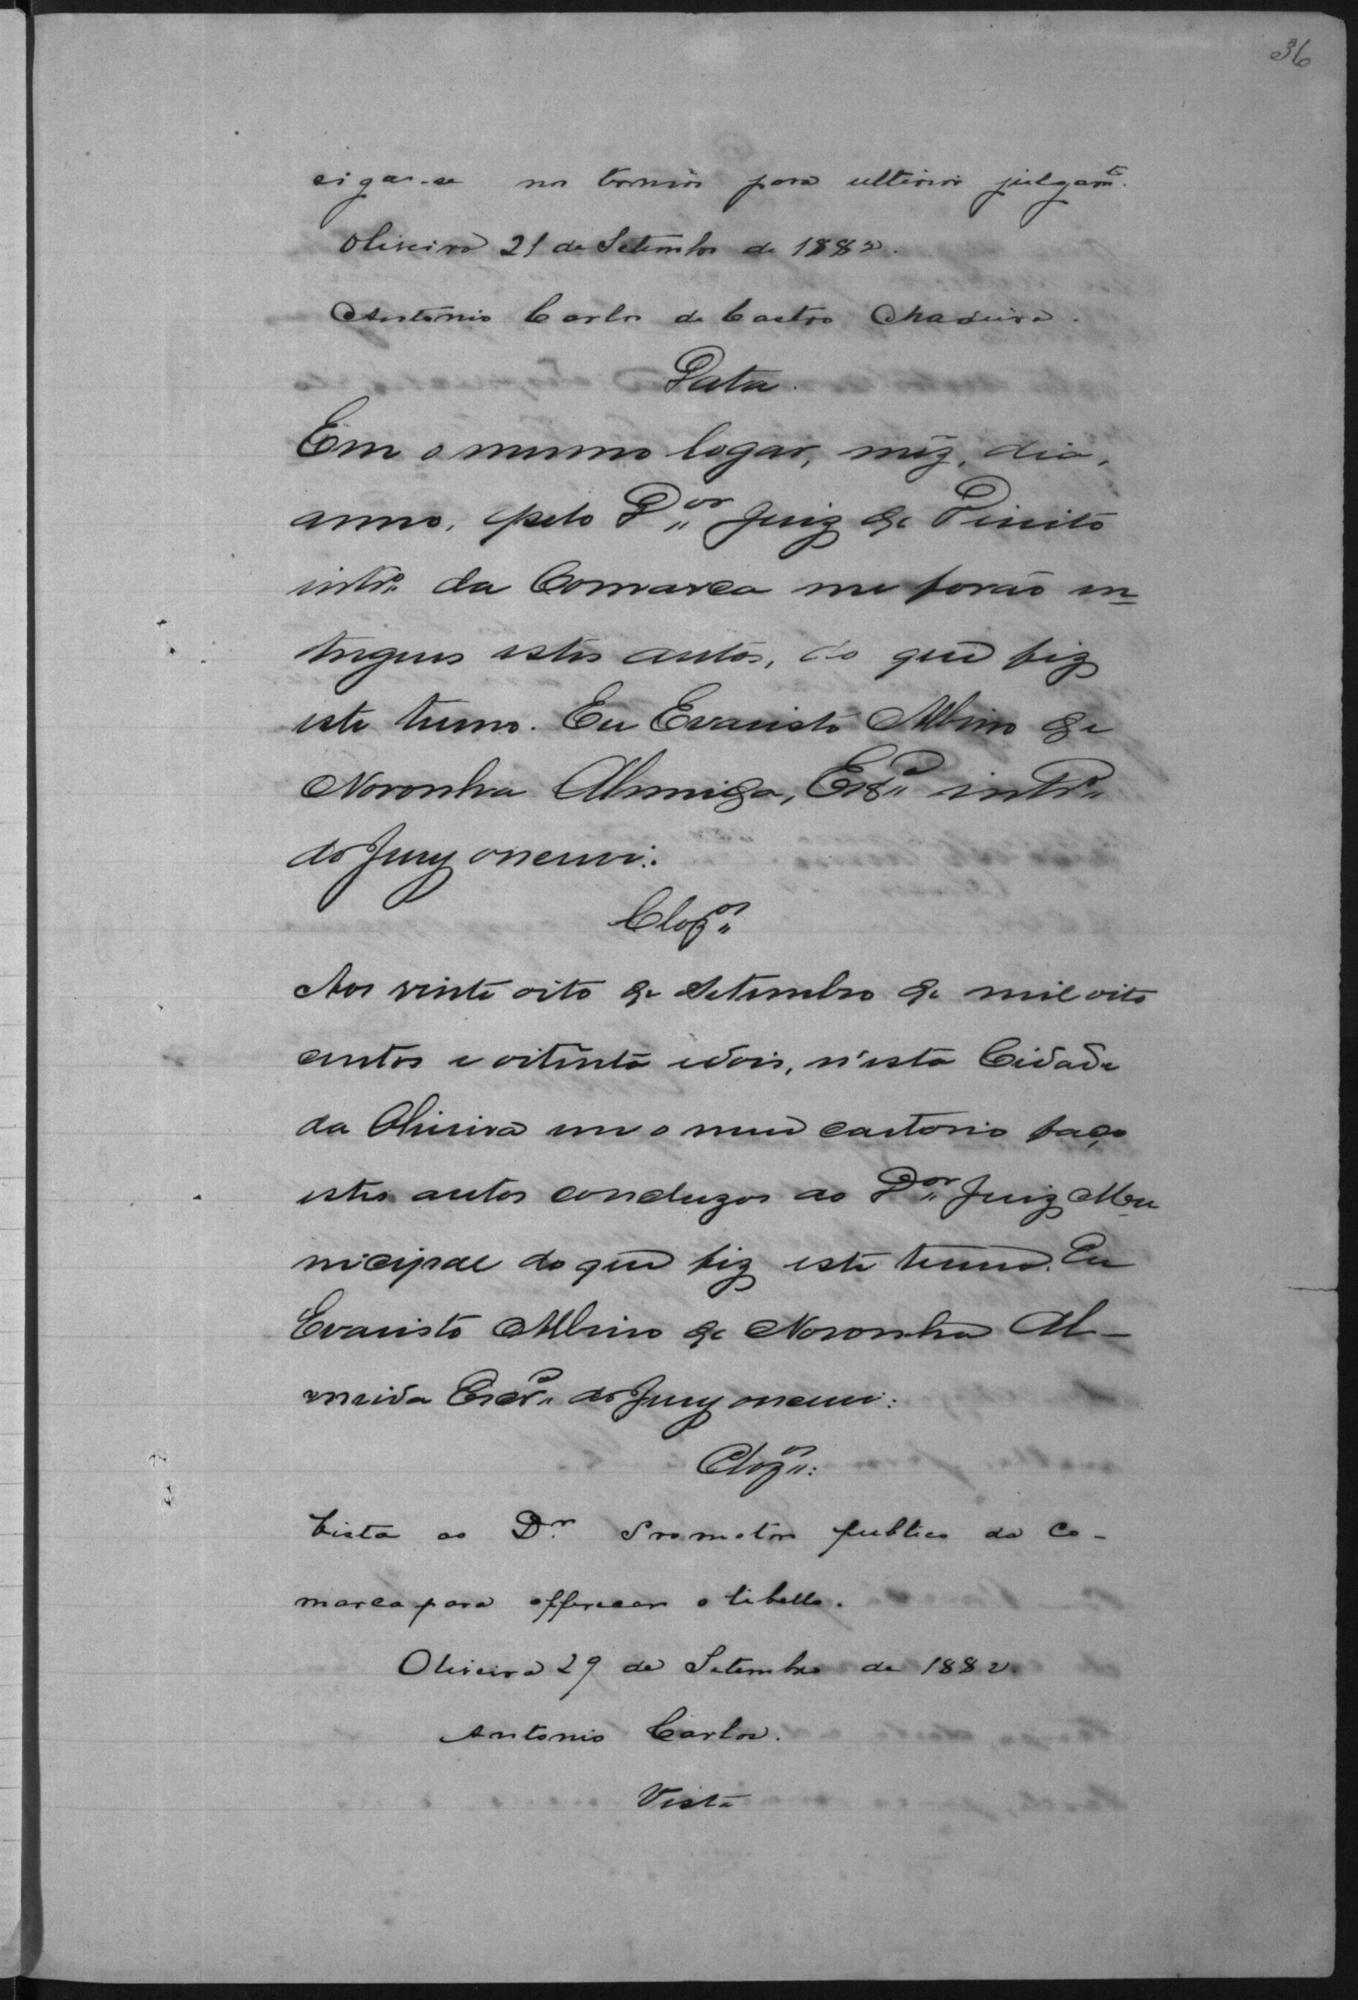 36
siga-se nos termos para ulterior julgam.to
Oliveira 21 de Setembro de 1882.
Antonio Carlos de Castro Madeira.
Data.
Em o mesmo logar, mêz, dia,
anno, pelo D.or Juiz de Direito
intr.o da Comarca me forão en=
tregues estes autos, do que fiz
este termo. Eu Evaristo Albino de
Noronha Almeida, Esc.m intr.o
do Jury o escrevi.
Clz.os
Aos vinte oito de Setembro de mil oito
centos e oitenta e dois, n'esta Cidade
da Oliveira em o meu cartorio faço
estes autos concluzos ao D.or Juiz Mu
nicipal do que fiz este termo. Eu
Evaristo Albino de Noronha Al-
meida Escr.m do Jury o escrevi:
Clz.os:
Vista ao D.r Promotor publico da Co-
marca para offerecer o libello.
Oliveira 29 de Setembro de 1882.
Antonio Carlos.
Vista